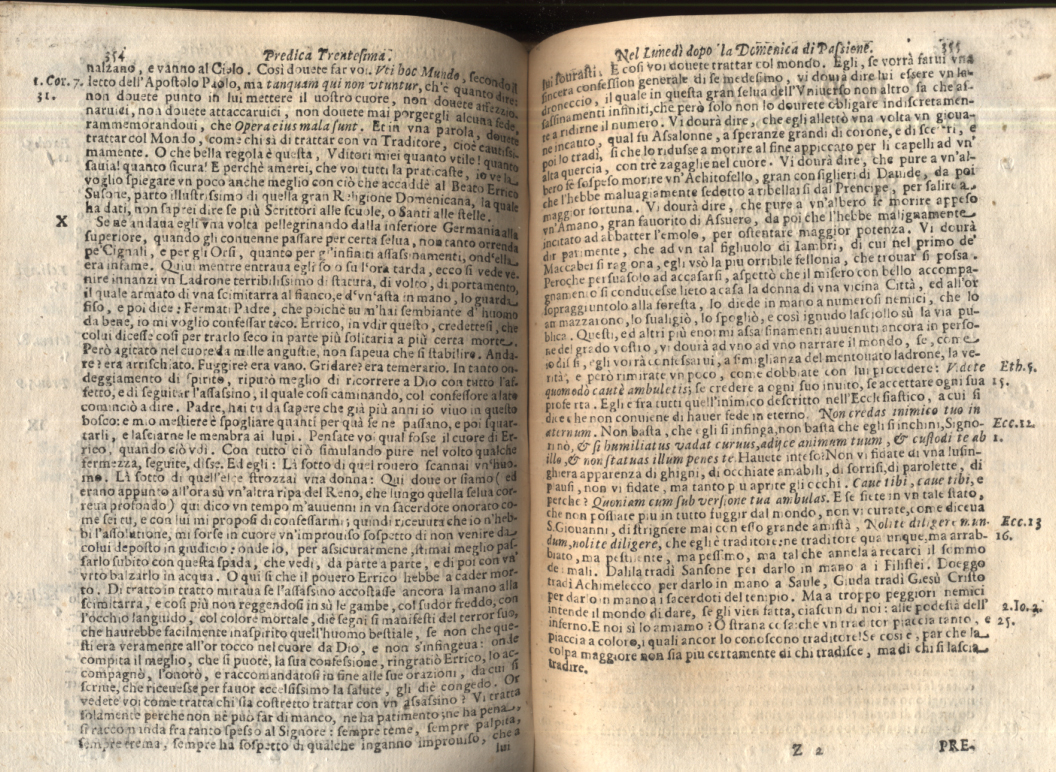 354 Predica Trentesima.
nalzano, e vanno al Cielo. Così douete far voi. Vti hoc Mundo, secondo il
1. Cor. 7. detto dell'Apostolo Paolo, ma tanquam qui non vtuntur, ch'è quanto dire:
31. non douete punto in lui mettere il uostro cuore, non douete affezzio-
naruici, non douete attaccaruici, non douete mai porgergli alcuna fede,
rammemorandoui, che Opera eius mala sunt. Et in vna parola, douete
trattar col Mondo, come chi si dì trattar con vn Traditore, cioè cautissi-
mamente. O che bella regola è questa, Vditori miei quanto vtile! quanto
sauia! quanto sicura! E perchè amerei, che voi tutti la praticaste, io ve la
voglio spiegare vn poco anche meglio con ciò che accaddè al Beato Errico
Susone, parto illustrissimo di quella gran Religione Domenicana, la quale
ha dati, non saprei dire se più Scrittori alle scuole, o Santi alle stelle.
X Se ne andaua egli vna volta pellegrinando dalla inferiore Germania alla
superiore, quando gli conuenne passare per certa selua, non tanto orrenda
pe' Cignali, e per gli Orsi, quanto per gl'infiniti assassinamenti, ond'ella
era infame. Quiui mentre entraua egli solo su l'ora tarda, ecco si vede ve-
nire innanzi vn Ladrone terribilissimo di statura, di volto, di portamento,
il quale armato di vna scimitarra al fianco, e d'vn'asta in mano, lo guarda
fiso, e poi dice: Fermati Padre, che poichè tu m'hai sembiante d'huomo
da bene, io mi voglio confessar teco. Errico, in vdir questo, credettesi, che
colui dicesse così per trarlo seco in parte più solitaria a più certa morte.
Però agitato nel cuore da mille angustie, non sapeua che si stabilire. Anda-
re? era arrischiato. Fuggire? era vano. Gridare? era temerario. In tanto on-
deggiamento di spirito, riputò meglio di ricorrere a Dio con tutto l'af-
fetto, e di seguitar l'assassino, il quale così caminando, col confessore a lato
cominciò a dire. Padre, hai tu da sapere che già più anni io viuo in questo
bosco: e mio mestiere è spogliare quanti per quà se ne passano, e poi squar-
tarli, e lasciarne le membra ai lupi. Pensate voi qual fosse il cuore di Er-
rico, quando ciò vdì. Con tutto ciò simulando pure nel volto qualche
fermezza, seguite, disse. Ed egli: Lì sotto di quel rouero scannai vn'huo-
mo. Lì sotto di quell'elce strozzai vna donna: Qui doue or siamo (ed
erano appunto all'ora sù vn'altra ripa del Reno, che lungo quella selua cor-
reua profondo) qui dico vn tempo m'auuenni in vn sacerdote onorato co-
me sei tu, e con lui mi proposi di confessarmi; quindi riceuuta che io n'heb-
bi l'assoluzione, mi sorse in cuore vn'improuiso sospetto di non venire da
colui deposto in giudicio: onde io, per assicurarmene, stimai meglio pas-
sarlo subito con questa spada, che vedi, da parte a parte, e di poi con vn'
vrto balzarlo in acqua. O qui sì che il pouero Errico hebbe a cader mor-
to. Di tratto in tratto miraua se l'assassino accostasse ancora la mano alla
scimitarra, e così più non reggendosi in sù le gambe, col sudor freddo, con
l'occhio languido, col colore mortale, diè segni sì manifesti del terror suo,
che haurebbe facilmente inasprito quell'huomo bestiale, se non che que-
sti era veramente all'or tocco nel cuore da Dio, e non s'infingeua: onde
compita il meglio, che si puotè, la sua confessione, ringratiò Errico, lo ac-
compagnò, l'onorò, e raccomandatosi in fine alle sue orazioni, da cui si
scriue, che riceuesse per fauor eccelsissimo la salute, gli diè congedo. Or
vedete voi come tratta chi sia costretto trattar con vn assassino? Vi tratta
solamente perche non ne può far di manco, ne ha patimento; ne ha pena,
si raccomanda fra tanto spesso al Signore: sempre teme, sempre palpita,
sempre trema, sempre ha sospetto di qualche inganno improuiso, che a
lui
Nel Lunedì dopo la Domenica di Passione. 355
lui sourasti. E così voi douete trattar col mondo. Egli, se vorrà farui vna
sincera confession generale di se medesimo, vi dourà dire lui essere vn la-
droneccio, il quale in questa gran selua dell'Vniuerso non altro fa che as-
sassinamenti infiniti, che però solo non lo dourete obligare indiscretamen-
te a ridirne il numero. Vi dourà dire, che egli allettò vna volta vn gioua-
ne incauto, qual fu Assalonne, a speranze grandi di corone, e di scetri, e
poi lo tradì, si che lo ridusse a morire al fine appiccato per li capelli ad vn'
alta quercia, con trè zagaglie nel cuore. Vi dourà dire, che pure a vn'al-
bero fè sospeso morire vn'Achitofello, gran consiglieri di Dauide, da poi
che l'hebbe maluagiamente sedotto a ribellarsi dal Prencipe, per salire a
maggior fortuna. Vi dourà dire, che pure a vn'albero fè morire appeso
vn'Amano, gran fauorito di Assuero, da poi che l'hebbe malignamente
incitato ad abbatter l'emolo, per ostentare maggior potenza. Vi dourà
dir parimente, che ad vn tal figliuolo di Iambri, di cui nel primo de'
Maccabei si ragiona, egli vsò la più orribile fellonia, che trouar si possa.
Peroche persuasolo ad accasarsi, aspettò che il misero con bello accompa-
gnamento si conducesse lieto a casa la donna di vna vicina Città, ed all'or
sopraggiuntolo alla foresta, lo diede in mano a numerosi nemici, che lo
ammazzarono, lo sualigiò, lo spogliò, e così ignudo lasciollo sù la via pu-
blica. Questi, ed altri più enormi assassinamenti auuenuti ancora in perso-
ne del grado vostro, vi dourà ad vno ad vno narrare il mondo, se, come
io dissi, egli vorrà confessarui, a simiglianza del mentouato ladrone, la ve-
rità; e però rimirate vn poco, come dobbiate con lui procedere: Videte Eth. 5.
quomodò cautè ambuletis; se credere a ogni suo inuito, se accettare ogni sua 15.
proferta. Egli è fra tutti quell'inimico descritto nell'Ecclesiastico, a cui si
dice che non conuiene di hauer fede in eterno. Non credas inimico tuo in Ecc. 12.
æternum. Non basta, che egli si finga, non basta che egli si inchini, Signo-
ri nò, & si humiliatus vadat curuus, adijce animum tuum, & custodi te ab 1.
illo, & non statuas illum penes te. Hauete inteso? Non vi fidate di vna lusin-
ghiera apparenza di ghigni, di occhiate amabili, di sorrisi, di parolette, di
plausi, non vi fidate, ma tanto più aprite gli occhi. Caue tibi, caue tibi, e
perche? Quoniam cum subuersione tua ambulas. E se siete in vn tale stato,
che non possiate più in tutto fuggir dal mondo, non vi curate, come diceua
S. Giouanni, di strignere mai con esso grande amistà, Nolite diligere mun- Ecc. 13
dum, nolite diligere, che egli è traditore: ne traditore qualunque, ma arrab- 16.
biato, ma pestilente, ma pessimo, ma tal che annela a recarci il sommo
de' mali. Dalila tradì Sansone per darlo in mano a i Filistei. Doeggo
tradì Achimelecco per darlo in mano a Saule, Giuda tradì Giesù Cristo
per darlo in mano a i sacerdoti del tempio. Ma a troppo peggiori nemici
intende il mondo di dare, se gli vien fatta, ciascun di noi: alle podestà dell' 2. Io. 2.
inferno. E noi sì lo amiamo? O strana cosa: che vn traditor piaccia tanto, e 25.
piaccia a coloro, i quali ancor lo conoscono traditore! Se così è, par che la
colpa maggiore non sia più certamente di chi tradisce, ma di chi si lascia
tradire.
Z 2 PRE-